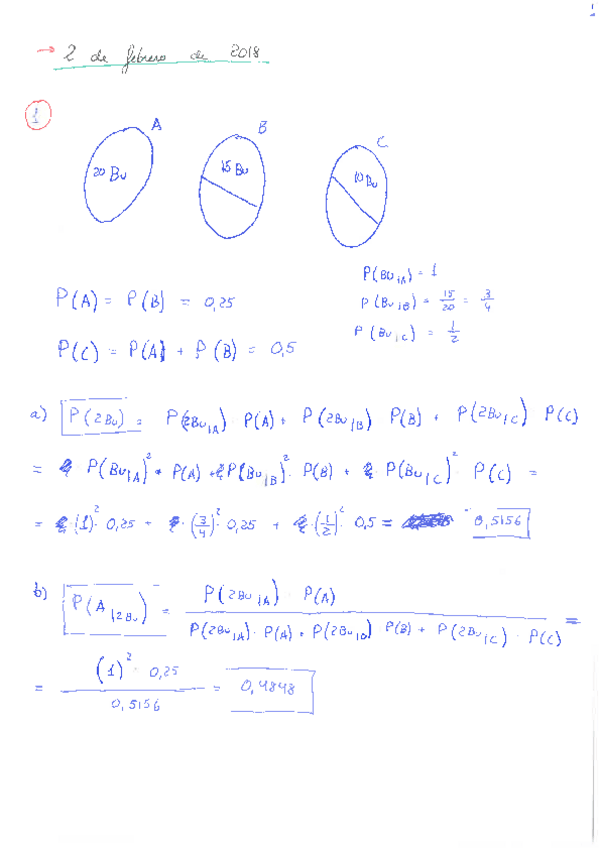 → 2 de febrero de 2018
1
A
B
C
20 Bu
15 Bu
10 Bu
P(Bu|A) = 1
P(A) = P(B) = 0,25
P(Bu|B) = 15/20 = 3/4
P(Bu|C) = 1/2
P(C) = P(A) + P(B) = 0,5
a) P(2Bu) = P(2Bu|A) P(A) + P(2Bu|B) P(B) + P(2Bu|C) P(C)
= P(Bu|A)² · P(A) + P(Bu|B)² · P(B) + P(Bu|C)² P(C) =
= (1)² · 0,25 + · (3/4)² · 0,25 + · (1/2)² · 0,5 = 0,5156
b) P(A|2Bu) = P(2Bu|A) · P(A) / P(2Bu|A) · P(A) + P(2Bu|B) · P(B) + P(2Bu|C) · P(C) =
= (1)² · 0,25 / 0,5156 = 0,4848